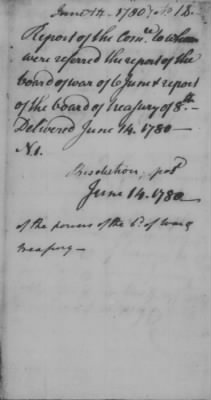 June 14. 1780 No 18.
Report of the Com.ee to whom
were referred the report of the
board of war of 6 June & report
of the board of treasury of 8th.
Delivered June 14. 1780
N 1.
Resolution, pas'd
June 14. 1780
of the powers of the bd. of war &
treasury